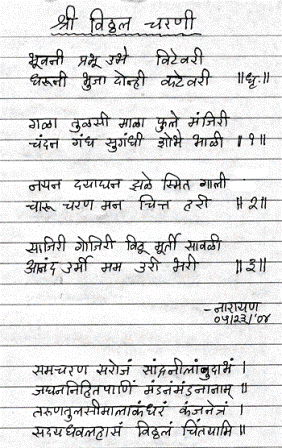 श्री विठ्ठल चरणी
भूवनी प्रभू उभे विटेवरी
धरूनी भुजा दोन्ही कटेवरी ॥धृ॥
गळा तुळसी माळा फुले मंजिरी
चंदन गंध सुगंधी शोभे भाळी ॥१॥
नयन दयाघन झळे स्मित गाली
चारू चरण मन चित्त हरी ॥२॥
साजिरी गोजिरी विठू मूर्ती सावळी
आनंद उर्मी मम उरी भरी ॥३॥
-नारायण
समचरण सरोजं सांद्रनीलांबुदाभं ।
जघननिहितपाणिं मंडनंमंडनानाम् ॥
तरुणतुलसीमालाकंधरं कंजनेत्रं ।
सदयधवलहासं विठ्ठलं चिंतयामि ॥